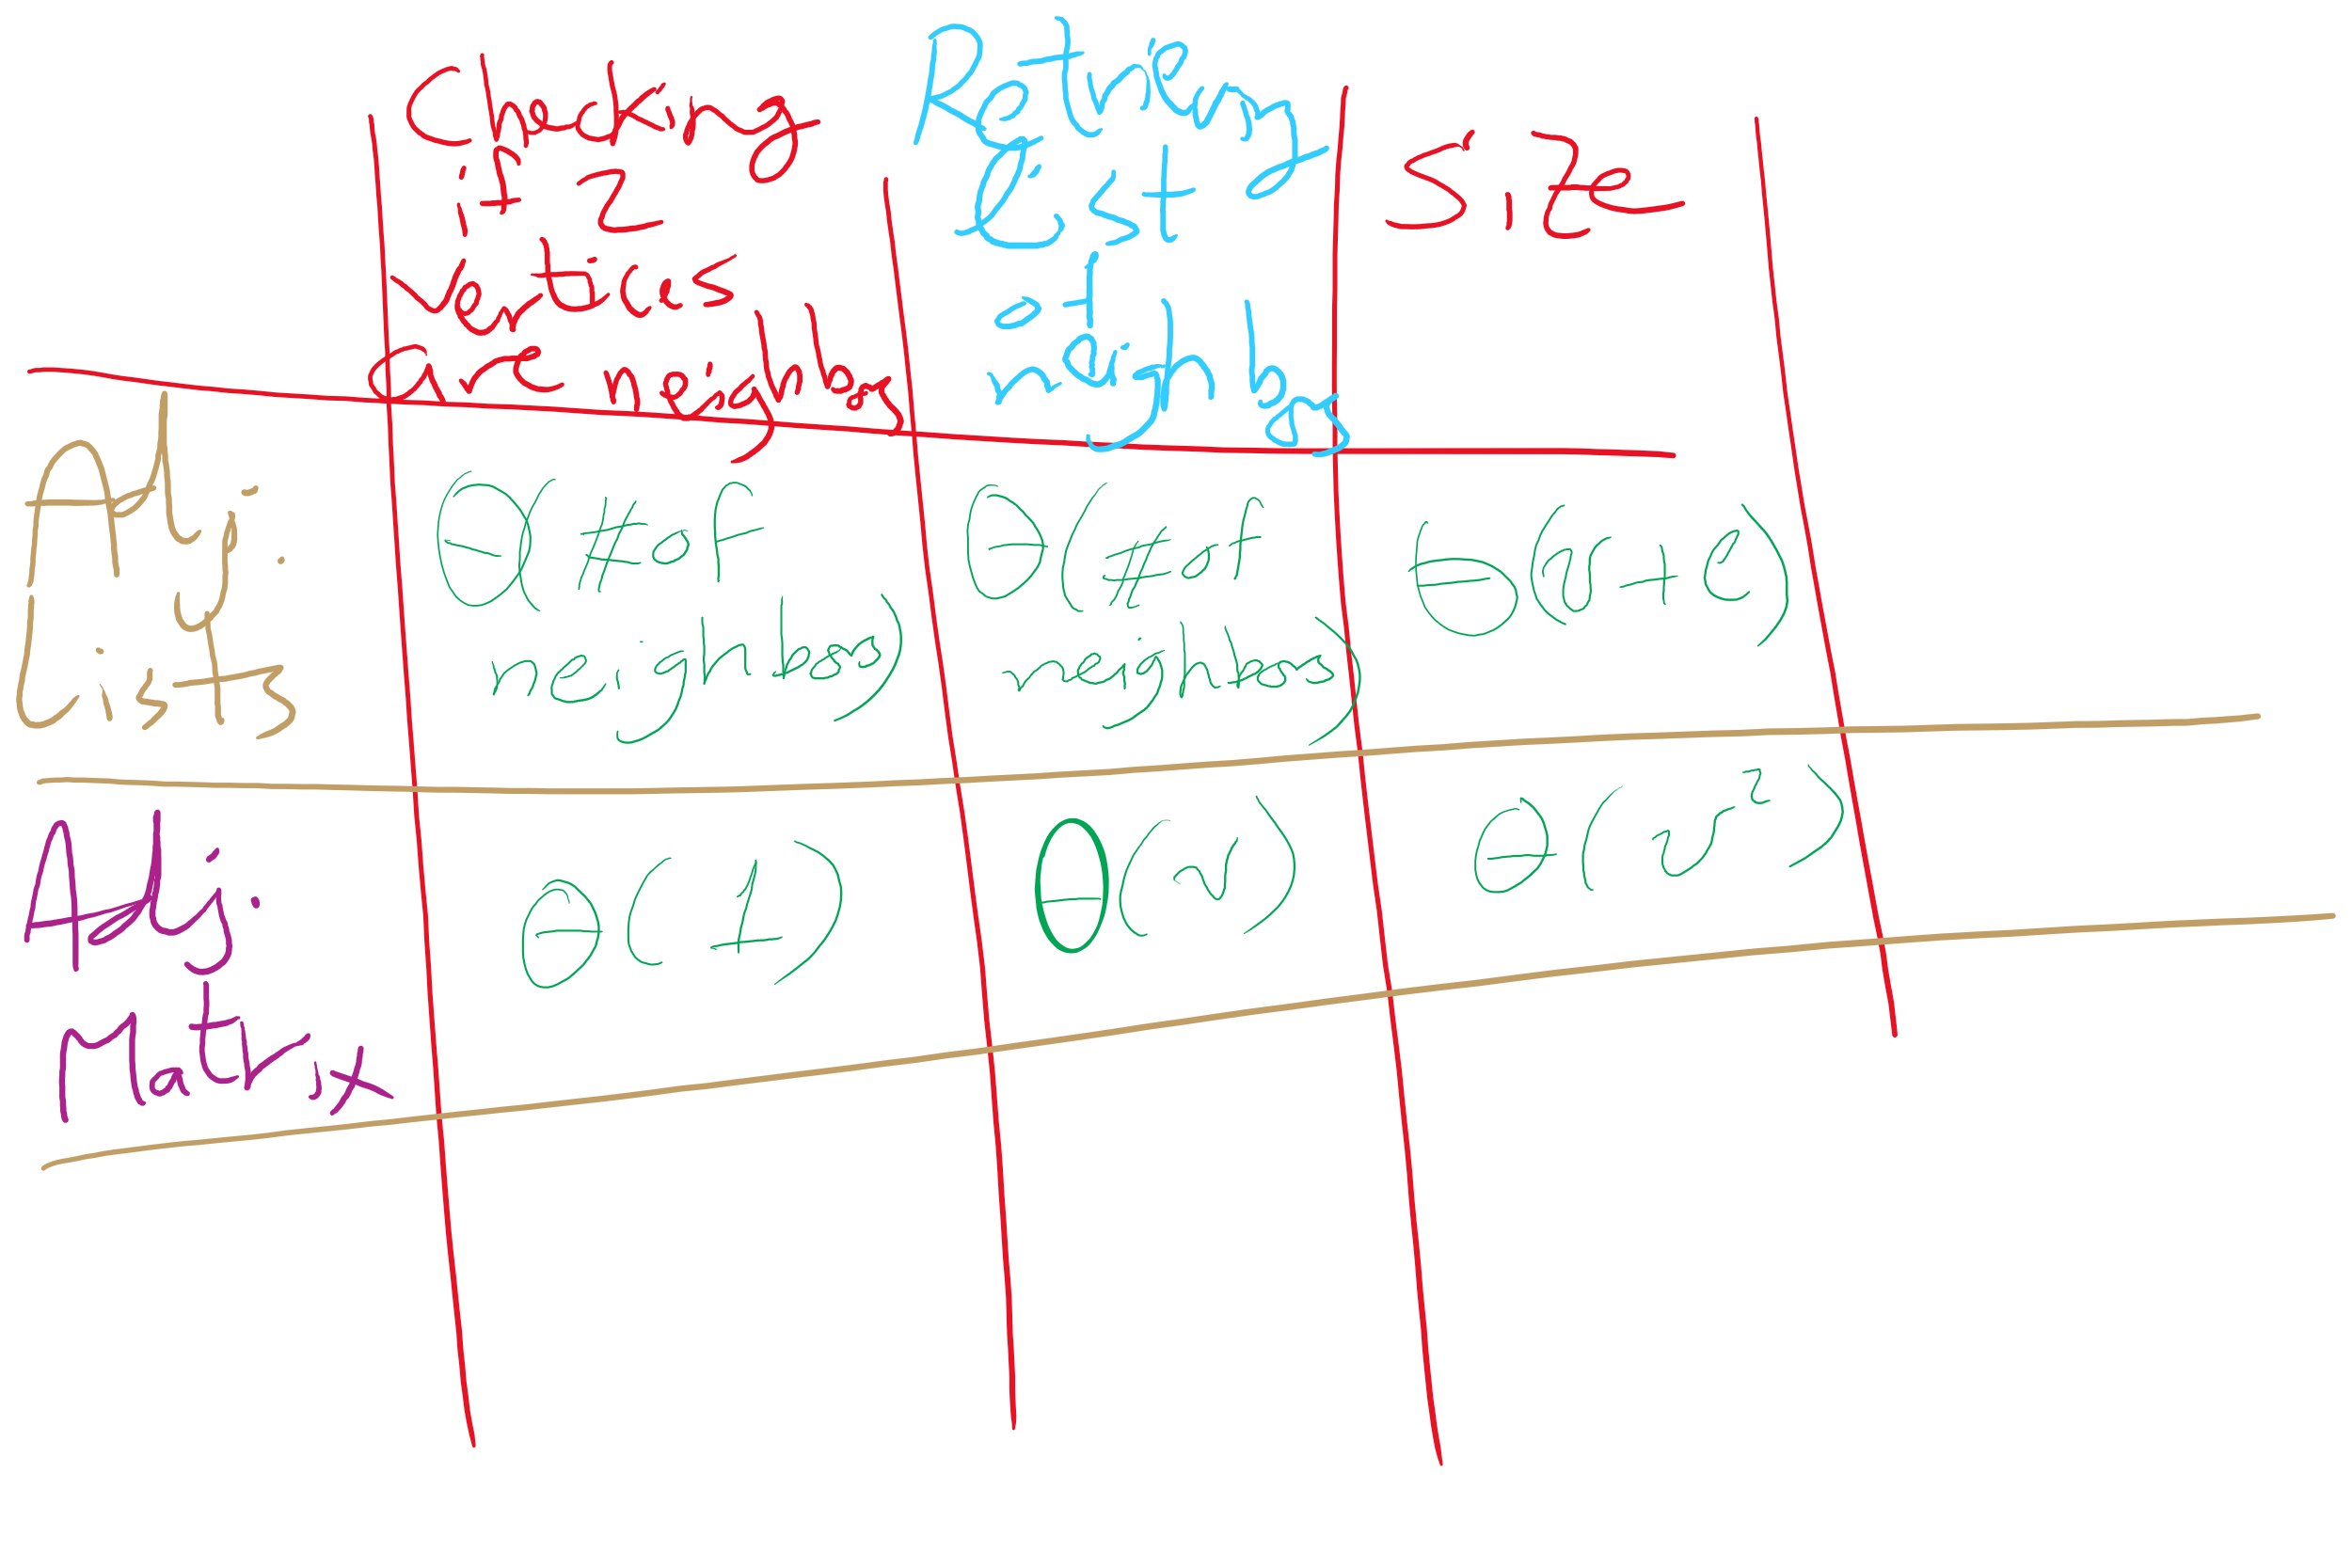 Checking
if 2
vertices
are neighbors
Retrieving
List
of
neighbors
Size
Adj.
Lists
Θ(# of
neighbors)
Θ(# of
neighbors)
Θ(v+e)
Adj.
Matrix
Θ(1)
Θ(v)
Θ(v²)